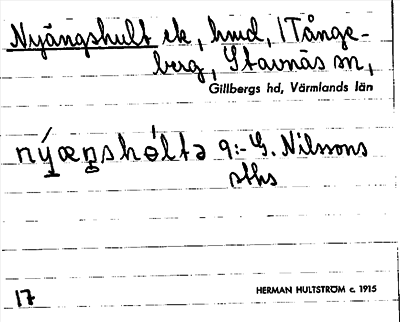 Nyängshult ek, hmd, 1 Tånge-
berg, Stavnäs sn,
Gillbergs hd, Värmlands län
nýæŋshóltə 9:- G. Nilssons
sths
17
HERMAN HULTSTRÖM c. 1915